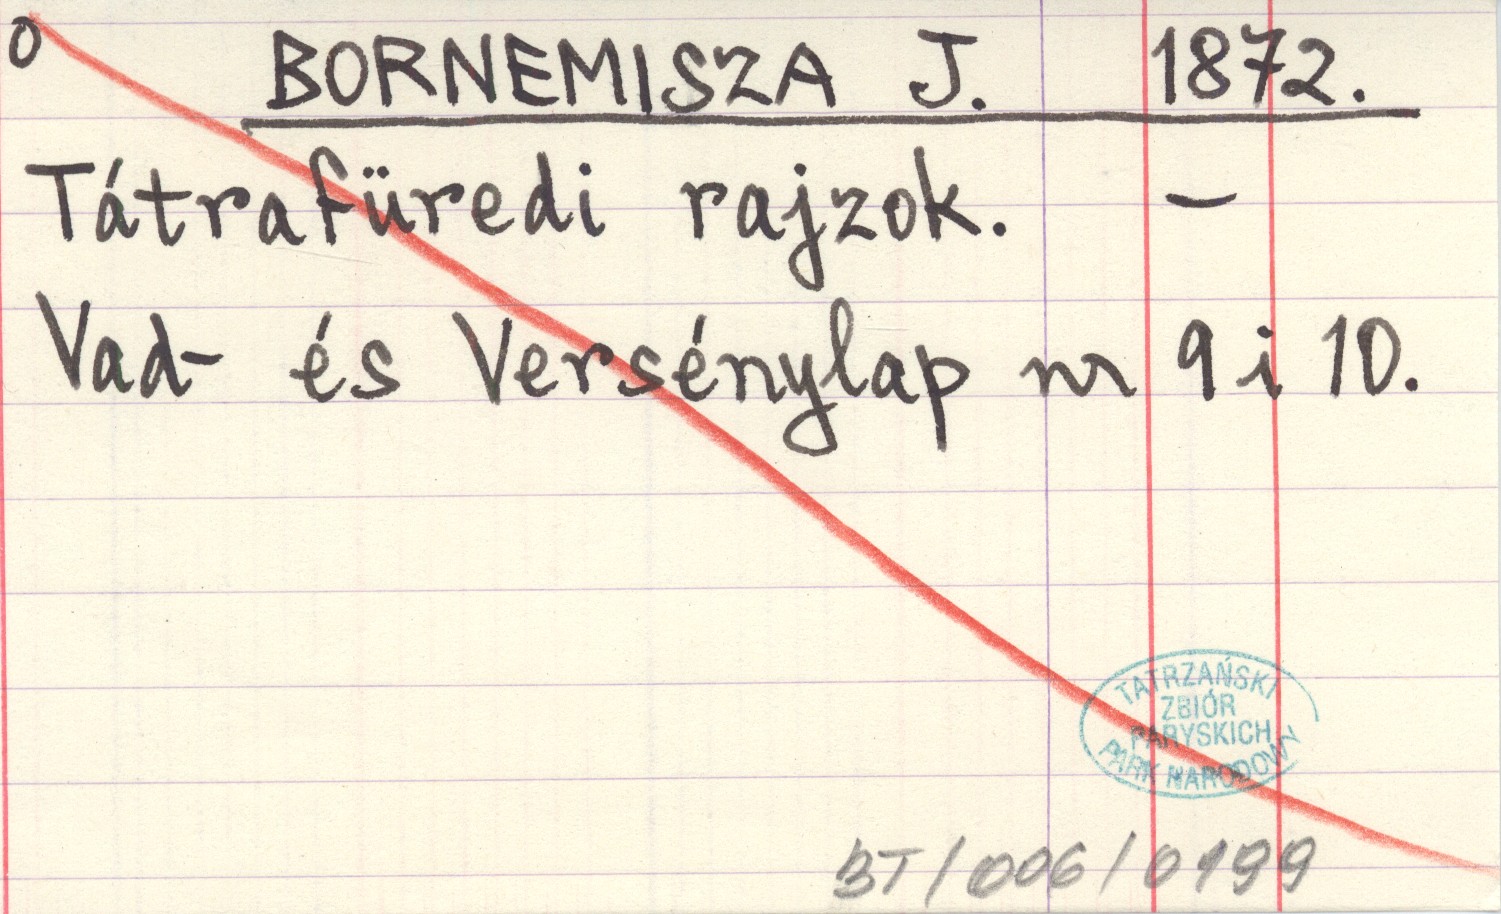 O BORNEMISZA J. 1872.
Tátrafüredi rajzok. –
Vad- és Versénylap nr 9 i 10.
TATRZAŃSKI
ZBIÓR
PARYSKICH
PARK NARODOWY
BT/006/0199